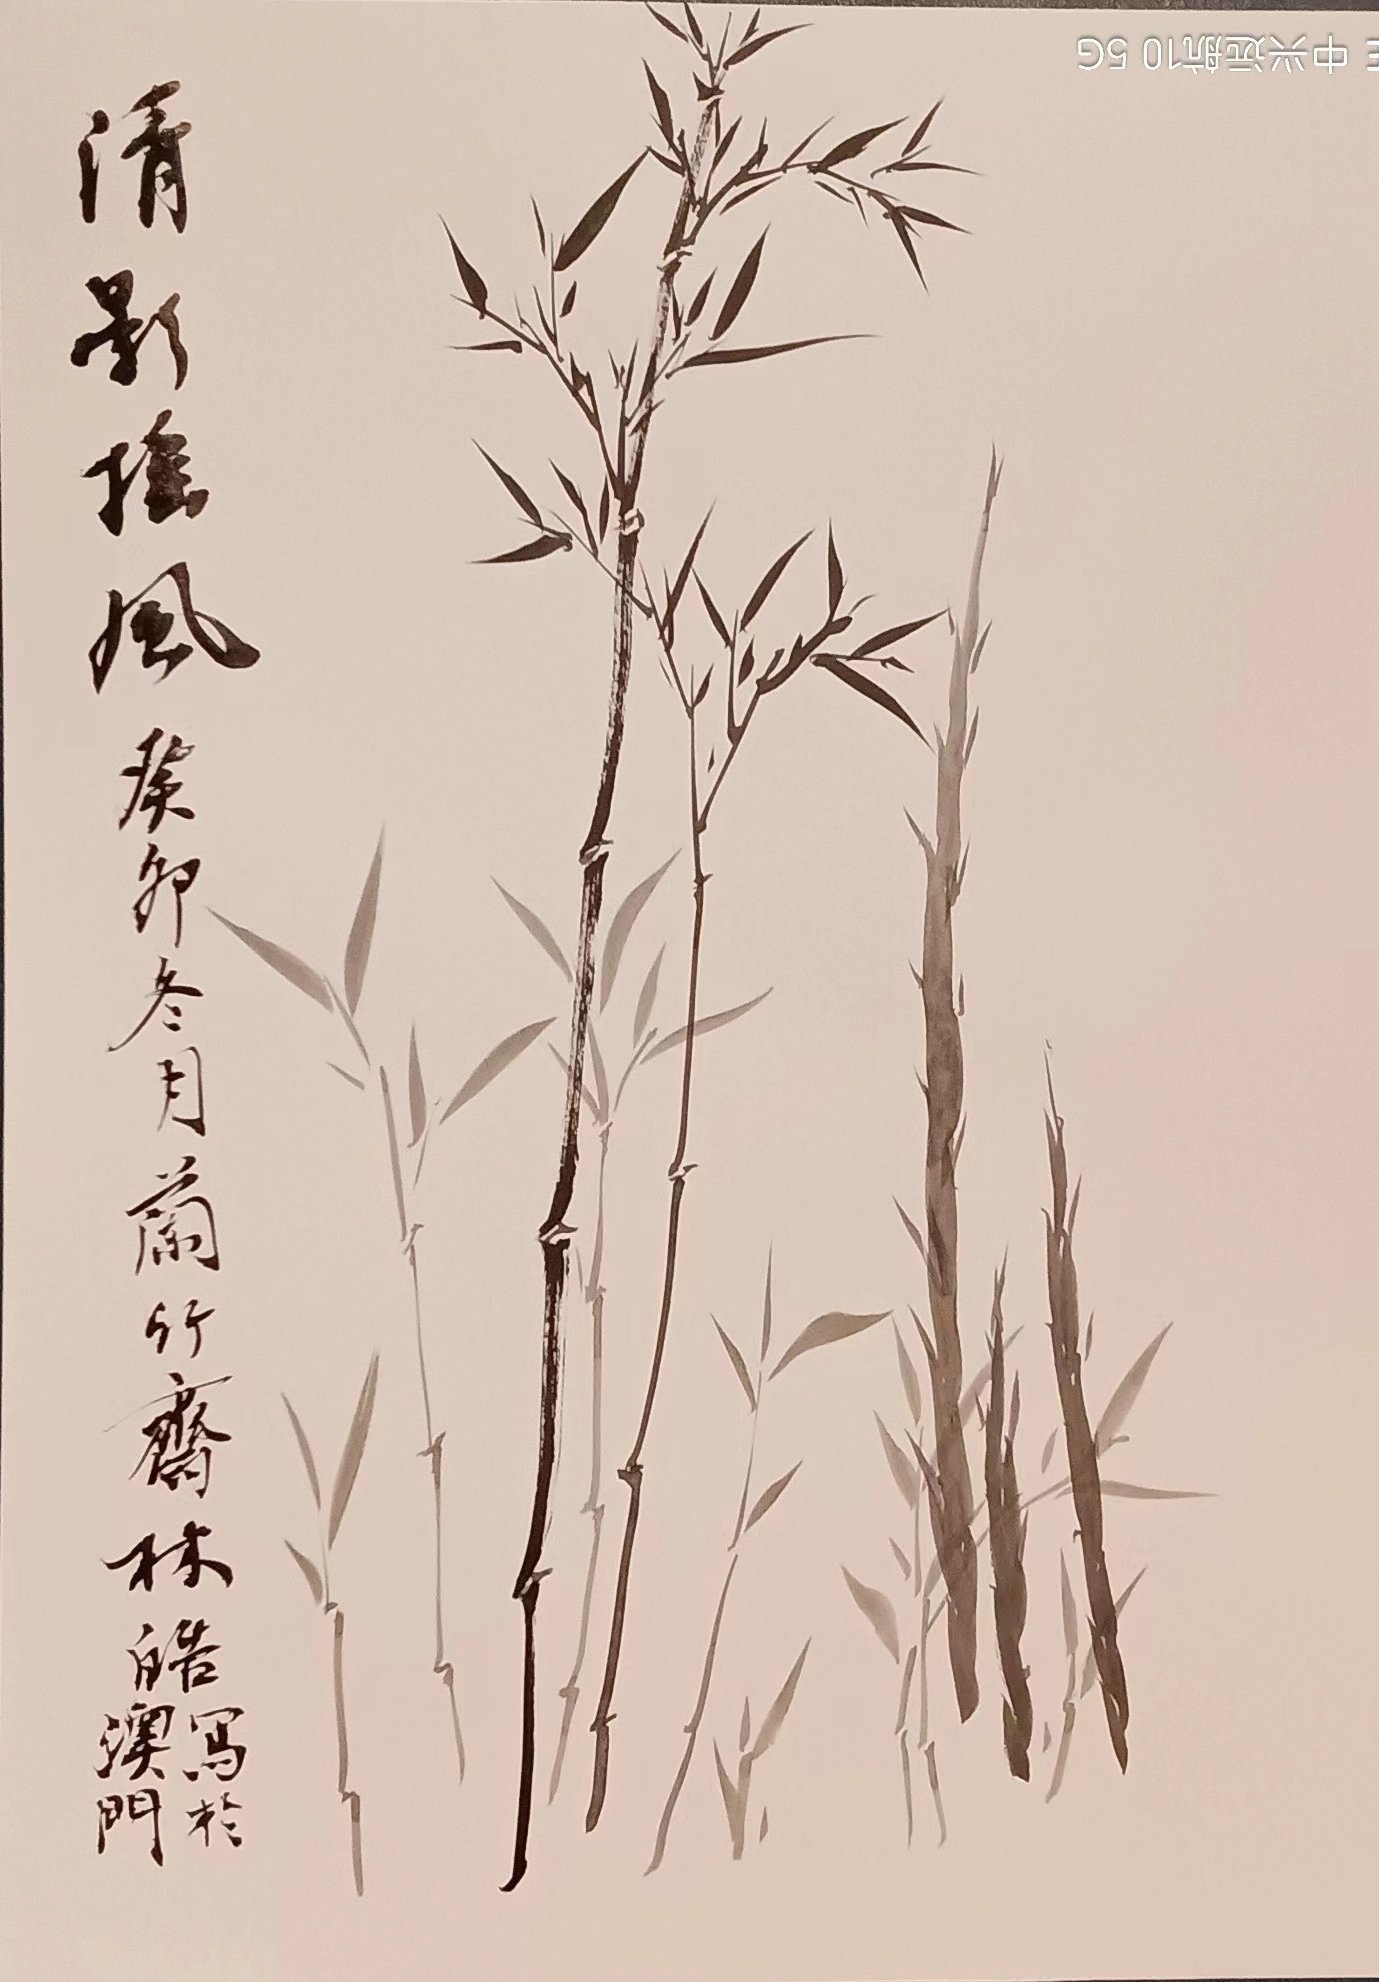 清影搖風
癸卯冬月蘭竹齋林皓寫於
澳門
中兴远航10 5G